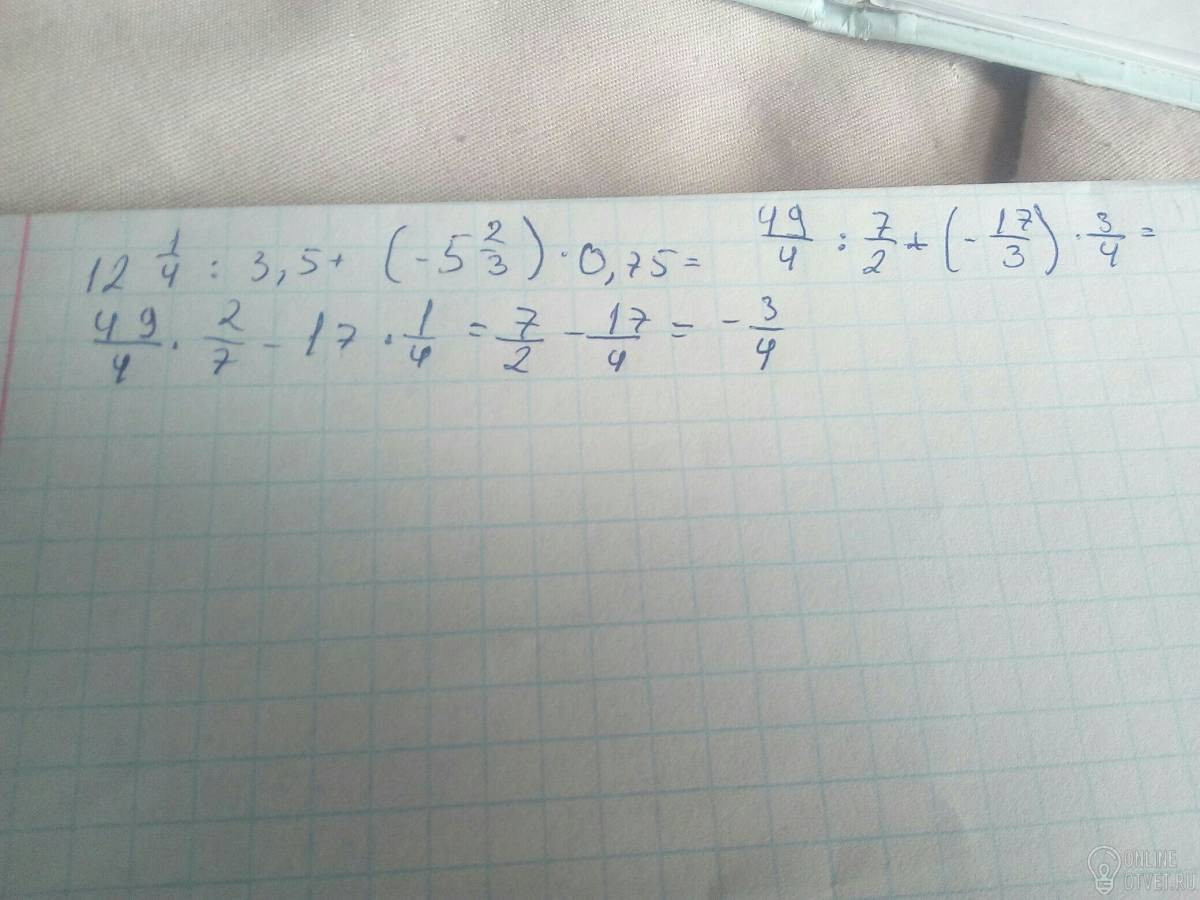 12 1/4 : 3,5 + (-5 2/3) · 0,75 = 49/4 : 7/2 + (-17/3) · 3/4 =
49/4 · 2/7 - 17 · 1/4 = 7/2 - 17/4 = -3/4
ONLINE
OTVET.RU